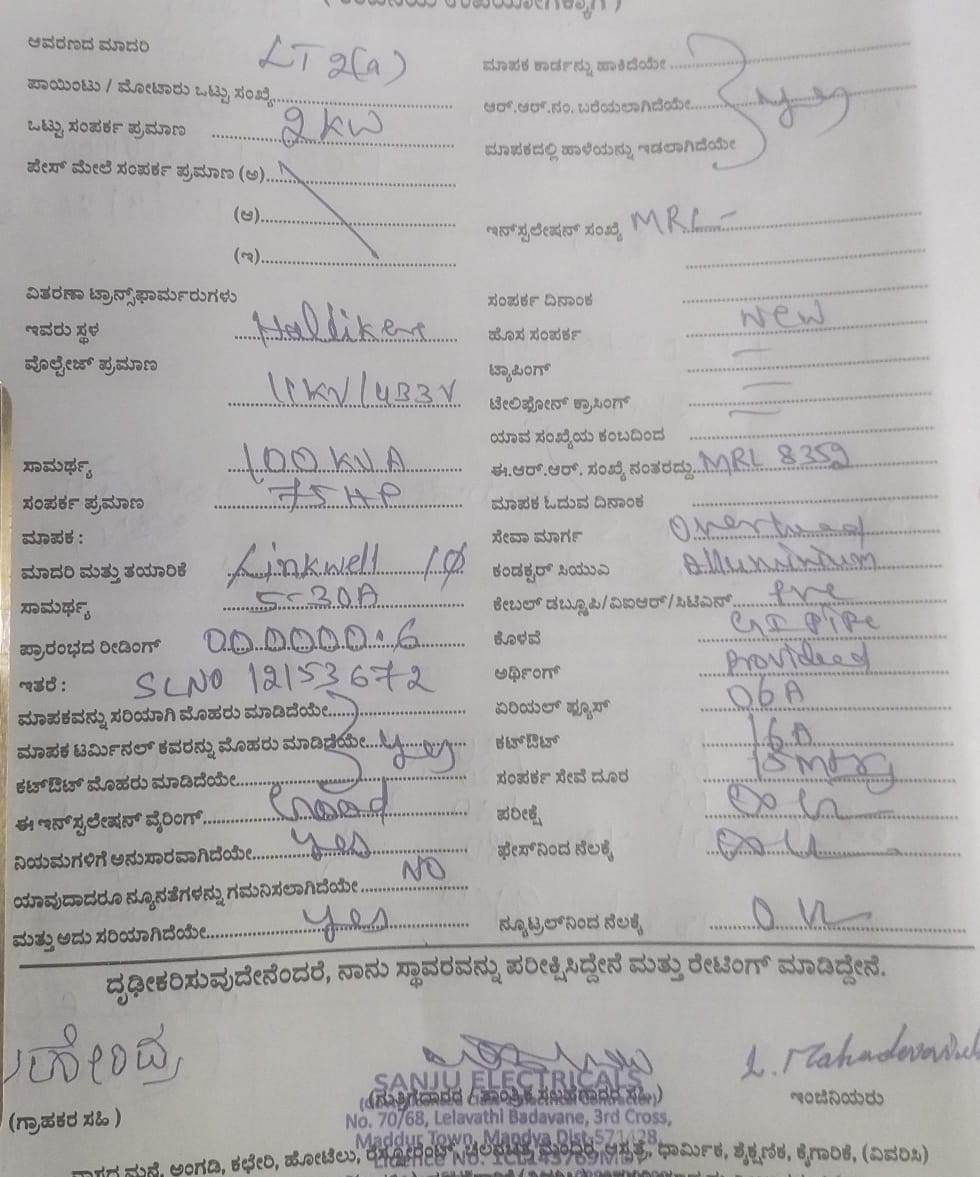 ಆವರಣದ ಮಾದರಿ LT 2(a)
ಪಾಯಿಂಟು / ಮೋಟಾರು ಒಟ್ಟು ಸಂಖ್ಯೆ
ಒಟ್ಟು ಸಂಪರ್ಕ ಪ್ರಮಾಣ 2 KW
ಪೇಸ್ ಮೇಲೆ ಸಂಪರ್ಕ ಪ್ರಮಾಣ (ಅ)
(ಆ)
(ಇ)
ವಿತರಣಾ ಟ್ರಾನ್ಸ್‌ಫಾರ್ಮರುಗಳು
ಇವರು ಸ್ಥಳ
ವೊಲ್ಟೇಜ್ ಪ್ರಮಾಣ
11KV/433V
ಸಾಮರ್ಥ್ಯ 100 KVA
ಸಂಪರ್ಕ ಪ್ರಮಾಣ 75HP
ಮಾಪಕ :
ಮಾದರಿ ಮತ್ತು ತಯಾರಿಕೆ Linkwell 1Ø
ಸಾಮರ್ಥ್ಯ 5-30A
ಪ್ರಾರಂಭದ ರೀಡಿಂಗ್ 00.0000.6
ಇತರೆ : SLNO 12153672
ಮಾಪಕವನ್ನು ಸರಿಯಾಗಿ ಮೊಹರು ಮಾಡಿದೆಯೇ
ಮಾಪಕ ಟರ್ಮಿನಲ್ ಕವರನ್ನು ಮೊಹರು ಮಾಡಿದೆಯೇ yes
ಕಟ್‌ಔಟ್ ಮೊಹರು ಮಾಡಿದೆಯೇ
ಈ ಇನ್‌ಸ್ಟಲೇಷನ್ ವೈರಿಂಗ್ Good
ನಿಯಮಗಳಿಗೆ ಅನುಸಾರವಾಗಿದೆಯೇ yes
ಯಾವುದಾದರೂ ನ್ಯೂನತೆಗಳನ್ನು ಗಮನಿಸಲಾಗಿದೆಯೇ NO
ಮತ್ತು ಅದು ಸರಿಯಾಗಿದೆಯೇ yes
ಮಾಪಕ ಕಾರ್ಡನ್ನು ಹಾಕಿದೆಯೇ
ಆರ್.ಆರ್.ನಂ. ಬರೆಯಲಾಗಿದೆಯೇ yes
ಮಾಪಕದಲ್ಲಿ ಹಾಳೆಯನ್ನು ಇಡಲಾಗಿದೆಯೇ
ಇನ್‌ಸ್ಟಲೇಷನ್ ಸಂಖ್ಯೆ MRL -
ಸಂಪರ್ಕ ದಿನಾಂಕ
ಹೊಸ ಸಂಪರ್ಕ NEW
ಟ್ಯಾಪಿಂಗ್ -
ಟೇಲಿಫೋನ್ ಕ್ರಾಸಿಂಗ್ -
ಯಾವ ಸಂಖ್ಯೆಯ ಕಂಬದಿಂದ -
ಈ.ಆರ್.ಆರ್. ಸಂಖ್ಯೆ ನಂತರದ್ದು MRL 8359
ಮಾಪಕ ಓದುವ ದಿನಾಂಕ
ಸೇವಾ ಮಾರ್ಗ Overhead
ಕಂಡಕ್ಟರ್ ಸಿಯುವಿ Alluminium
ಕೇಬಲ್ ಡಬ್ಲೂಪಿ/ವಿಐಆರ್/ಸಿಟಿಎಸ್ PVC
ಕೊಳವೆ GI PIPe
ಅರ್ಥಿಂಗ್ Provideed
ಏರಿಯಲ್ ಫ್ಯೂಸ್ 06A
ಕಟ್‌ಔಟ್ 16A
ಸಂಪರ್ಕ ಸೇವೆ ದೂರ
ಪರೀಕ್ಷೆ
ಫೇಸ್‌ನಿಂದ ನೆಲಕ್ಕೆ
ನ್ಯೂಟ್ರಲ್‌ನಿಂದ ನೆಲಕ್ಕೆ OK
ದೃಢೀಕರಿಸುವುದೇನೆಂದರೆ, ನಾನು ಸ್ಥಾವರವನ್ನು ಪರೀಕ್ಷಿಸಿದ್ದೇನೆ ಮತ್ತು ರೇಟಿಂಗ್ ಮಾಡಿದ್ದೇನೆ.
SANJU ELECTRICALS
(ಗ್ರಾಹಕರ ಸಹಿ) ಇಂಜಿನಿಯರು
No. 70/68, Lelavathi Badavane, 3rd Cross,
Maddur Town, Mandya Dist-571428
ವಾಸದ ಮನೆ, ಅಂಗಡಿ, ಕಛೇರಿ, ಹೋಟೆಲು, ರೆಸ್ಟೋರೆಂಟ್, ಚಲನಚಿತ್ರ ಮಂದಿರ, ಆಸ್ಪತ್ರೆ, ಧಾರ್ಮಿಕ, ಶೈಕ್ಷಣಿಕ, ಕೈಗಾರಿಕೆ, (ವಿವರಿಸಿ)